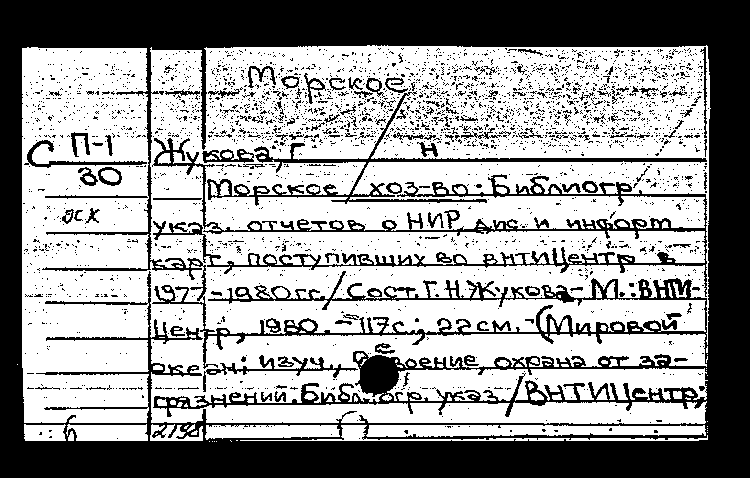 Морское
С П-1 Жукова, Г Н
30
Морское хоз-во: Библиогр.
указ. отчетов о НИР, дис. и информ.
карт, поступивших во ВНТИЦентр в
1977-1980 гг. / Сост. Г.Н. Жукова - М.: ВНТИ-
Центр, 1980. - 117с.; 22см. - (Мировой
океан: изуч., освоение, охрана от за-
грязнений. Библиогр. указ. / ВНТИЦентр;
б 2198